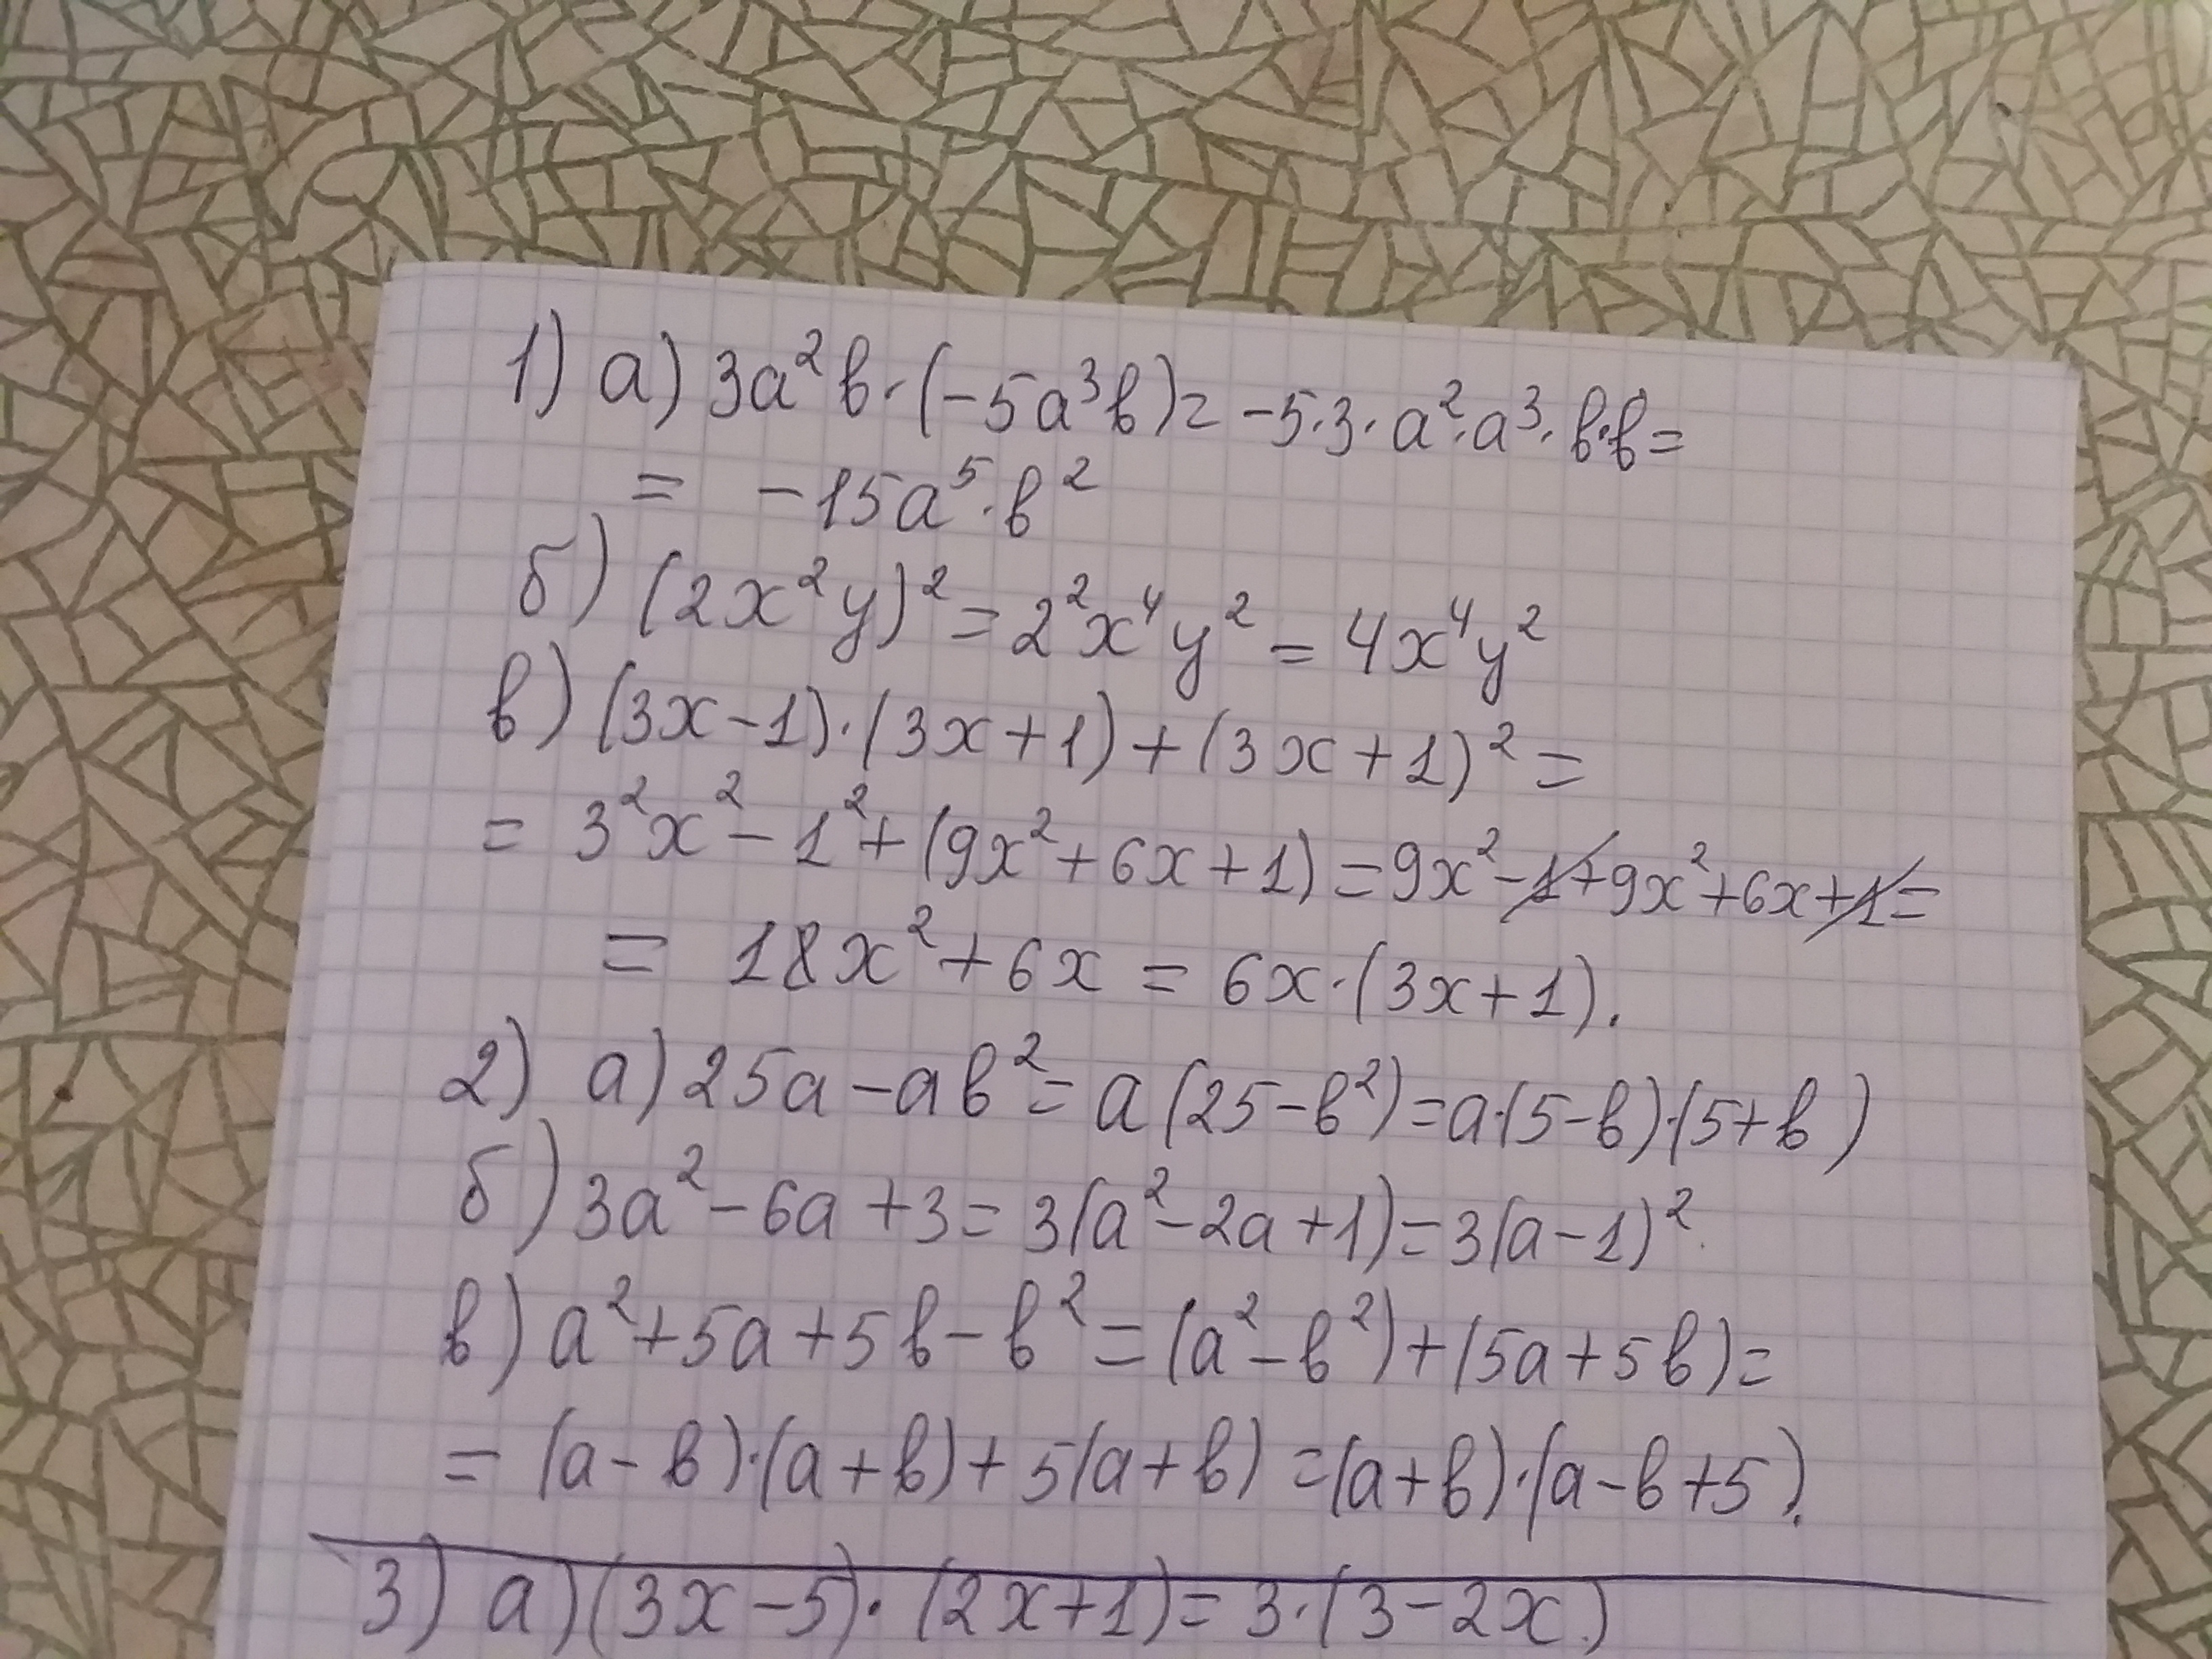 1) а) 3a²b·(-5a³b)= -5·3·a²·a³·b·b=
= -15a⁵·b²
б) (2x²y)²=2²x⁴y²=4x⁴y²
в) (3x-1)·(3x+1)+(3x+1)²=
= 3²x²-1²+(9x²+6x+1)=9x²-1+9x²+6x+1=
= 18x²+6x = 6x·(3x+1).
2) а) 25a-ab²=a(25-b²)=a·(5-b)·(5+b)
б) 3a²-6a+3=3(a²-2a+1)=3(a-1)²
в) a²+5a+5b-b²=(a²-b²)+(5a+5b)=
= (a-b)·(a+b)+5(a+b)=(a+b)·(a-b+5).
3) а) (3x-5)·(2x+1)=3·(3-2x)